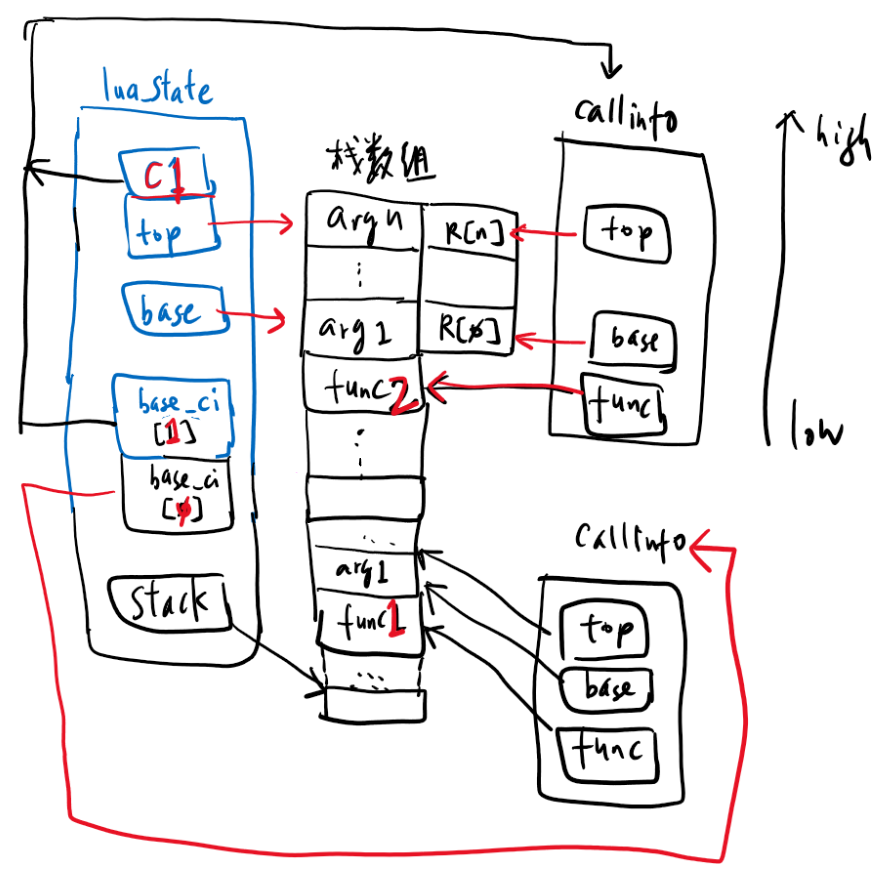 lua_state
C1
top
base
base_ci
[1]
base_ci
[0]
stack
栈数组
arg n
R[n]
⋮
arg 1
R[0]
func2
⋮
...
arg1
func1
...
callinfo
top
base
func
callinfo
top
base
func
high
low